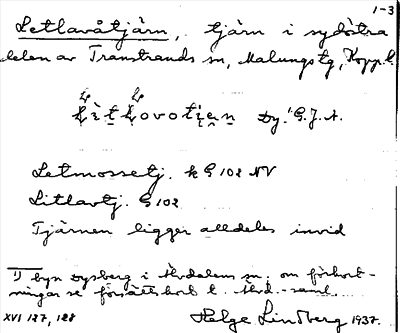 1-3
Letlavåtjärn, tjärn i sydöstra
delen av Transtrands sn, Malungs tg, Kopp. l.
Dy. G. J. A.
Letmossetj. k G 102 NV
Litlavtj. G 102
Tjärnen ligger alldeles invid
1) byn Dysberg i Älvdalens sn; om förkort-
ningar se försättsbl. t. Älvd.-saml.
XVI 127, 128
Helge Lindberg 1937.